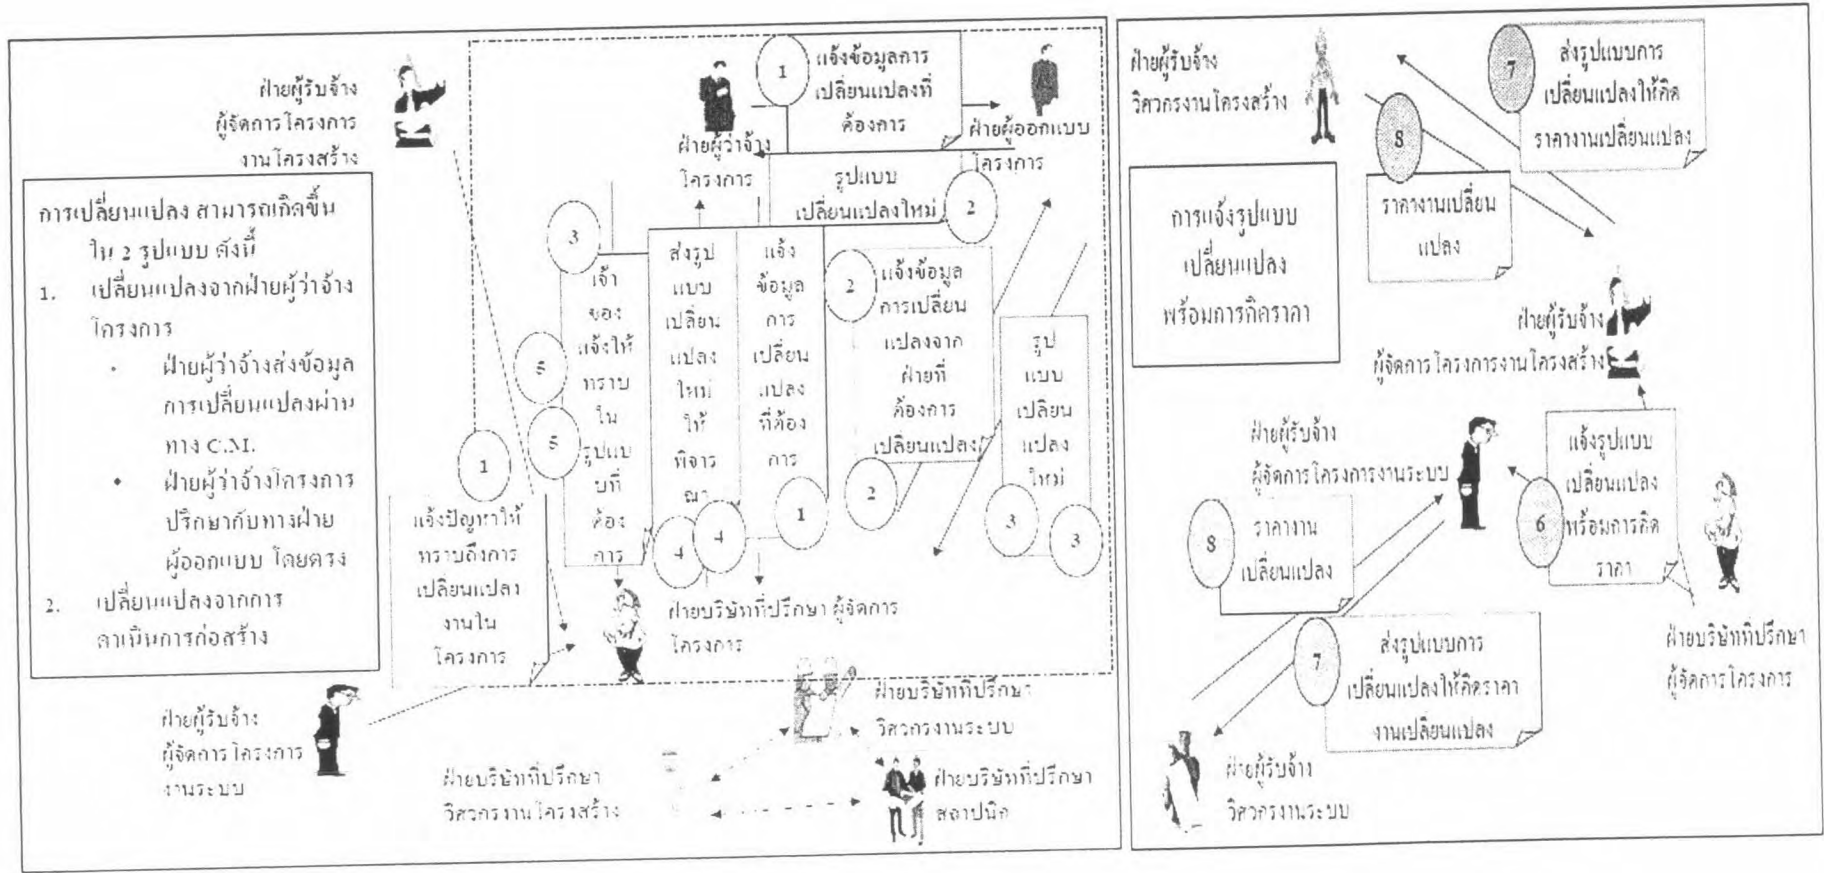 ฝ่ายผู้รับจ้าง
ผู้จัดการโครงการ
งานโครงสร้าง
การเปลี่ยนแปลง สามารถเกิดขึ้น
ใน 2 รูปแบบ ดังนี้
1. เปลี่ยนแปลงจากฝ่ายผู้ว่าจ้าง
โครงการ
• ฝ่ายผู้ว่าจ้างส่งข้อมูล
การเปลี่ยนแปลงผ่าน
ทาง C.M.
• ฝ่ายผู้ว่าจ้างโครงการ
ปรึกษากับทางฝ่าย
ผู้ออกแบบ โดยตรง
2. เปลี่ยนแปลงจากการ
ดำเนินการก่อสร้าง
ฝ่ายผู้รับจ้าง
ผู้จัดการโครงการ
งานระบบ
ฝ่ายผู้ว่าจ้าง
โครงการ
1
แจ้งข้อมูลการ
เปลี่ยนแปลงที่
ต้องการ
ฝ่ายผู้ออกแบบ
โครงการ
รูปแบบ
เปลี่ยนแปลงใหม่
2
3
5
5
เจ้า
ของ
แจ้งให้
ทราบ
ใน
รูปแบ
บที่
ต้อง
การ
ส่งรูป
แบบ
เปลี่ยน
แปลง
ใหม่
ให้
พิจาร
ณา
4
4
แจ้ง
ข้อมูล
การ
เปลี่ยน
แปลง
ที่ต้อง
การ
1
2
แจ้งข้อมูล
การเปลี่ยน
แปลงจาก
ฝ่ายที่
ต้องการ
เปลี่ยนแปลง
2
รูป
แบบ
เปลี่ยน
แปลง
ใหม่
3
3
1
แจ้งปัญหาให้
ทราบถึงการ
เปลี่ยนแปลง
งานใน
โครงการ
ฝ่ายบริษัทที่ปรึกษา ผู้จัดการ
โครงการ
ฝ่ายบริษัทที่ปรึกษา
วิศวกรงานระบบ
ฝ่ายบริษัทที่ปรึกษา
วิศวกรงานโครงสร้าง
ฝ่ายบริษัทที่ปรึกษา
สถาปนิก
ฝ่ายผู้รับจ้าง
วิศวกรงานโครงสร้าง
7
ส่งรูปแบบการ
เปลี่ยนแปลงให้คิด
ราคางานเปลี่ยนแปลง
8
ราคางานเปลี่ยน
แปลง
การแจ้งรูปแบบ
เปลี่ยนแปลง
พร้อมการคิดราคา
ฝ่ายผู้รับจ้าง
ผู้จัดการโครงการงานโครงสร้าง
ฝ่ายผู้รับจ้าง
ผู้จัดการโครงการงานระบบ
6
แจ้งรูปแบบ
เปลี่ยนแปลง
พร้อมการคิด
ราคา
8
ราคางาน
เปลี่ยนแปลง
7
ส่งรูปแบบการ
เปลี่ยนแปลงให้คิดราคา
งานเปลี่ยนแปลง
ฝ่ายบริษัทที่ปรึกษา
ผู้จัดการโครงการ
ฝ่ายผู้รับจ้าง
วิศวกรงานระบบ